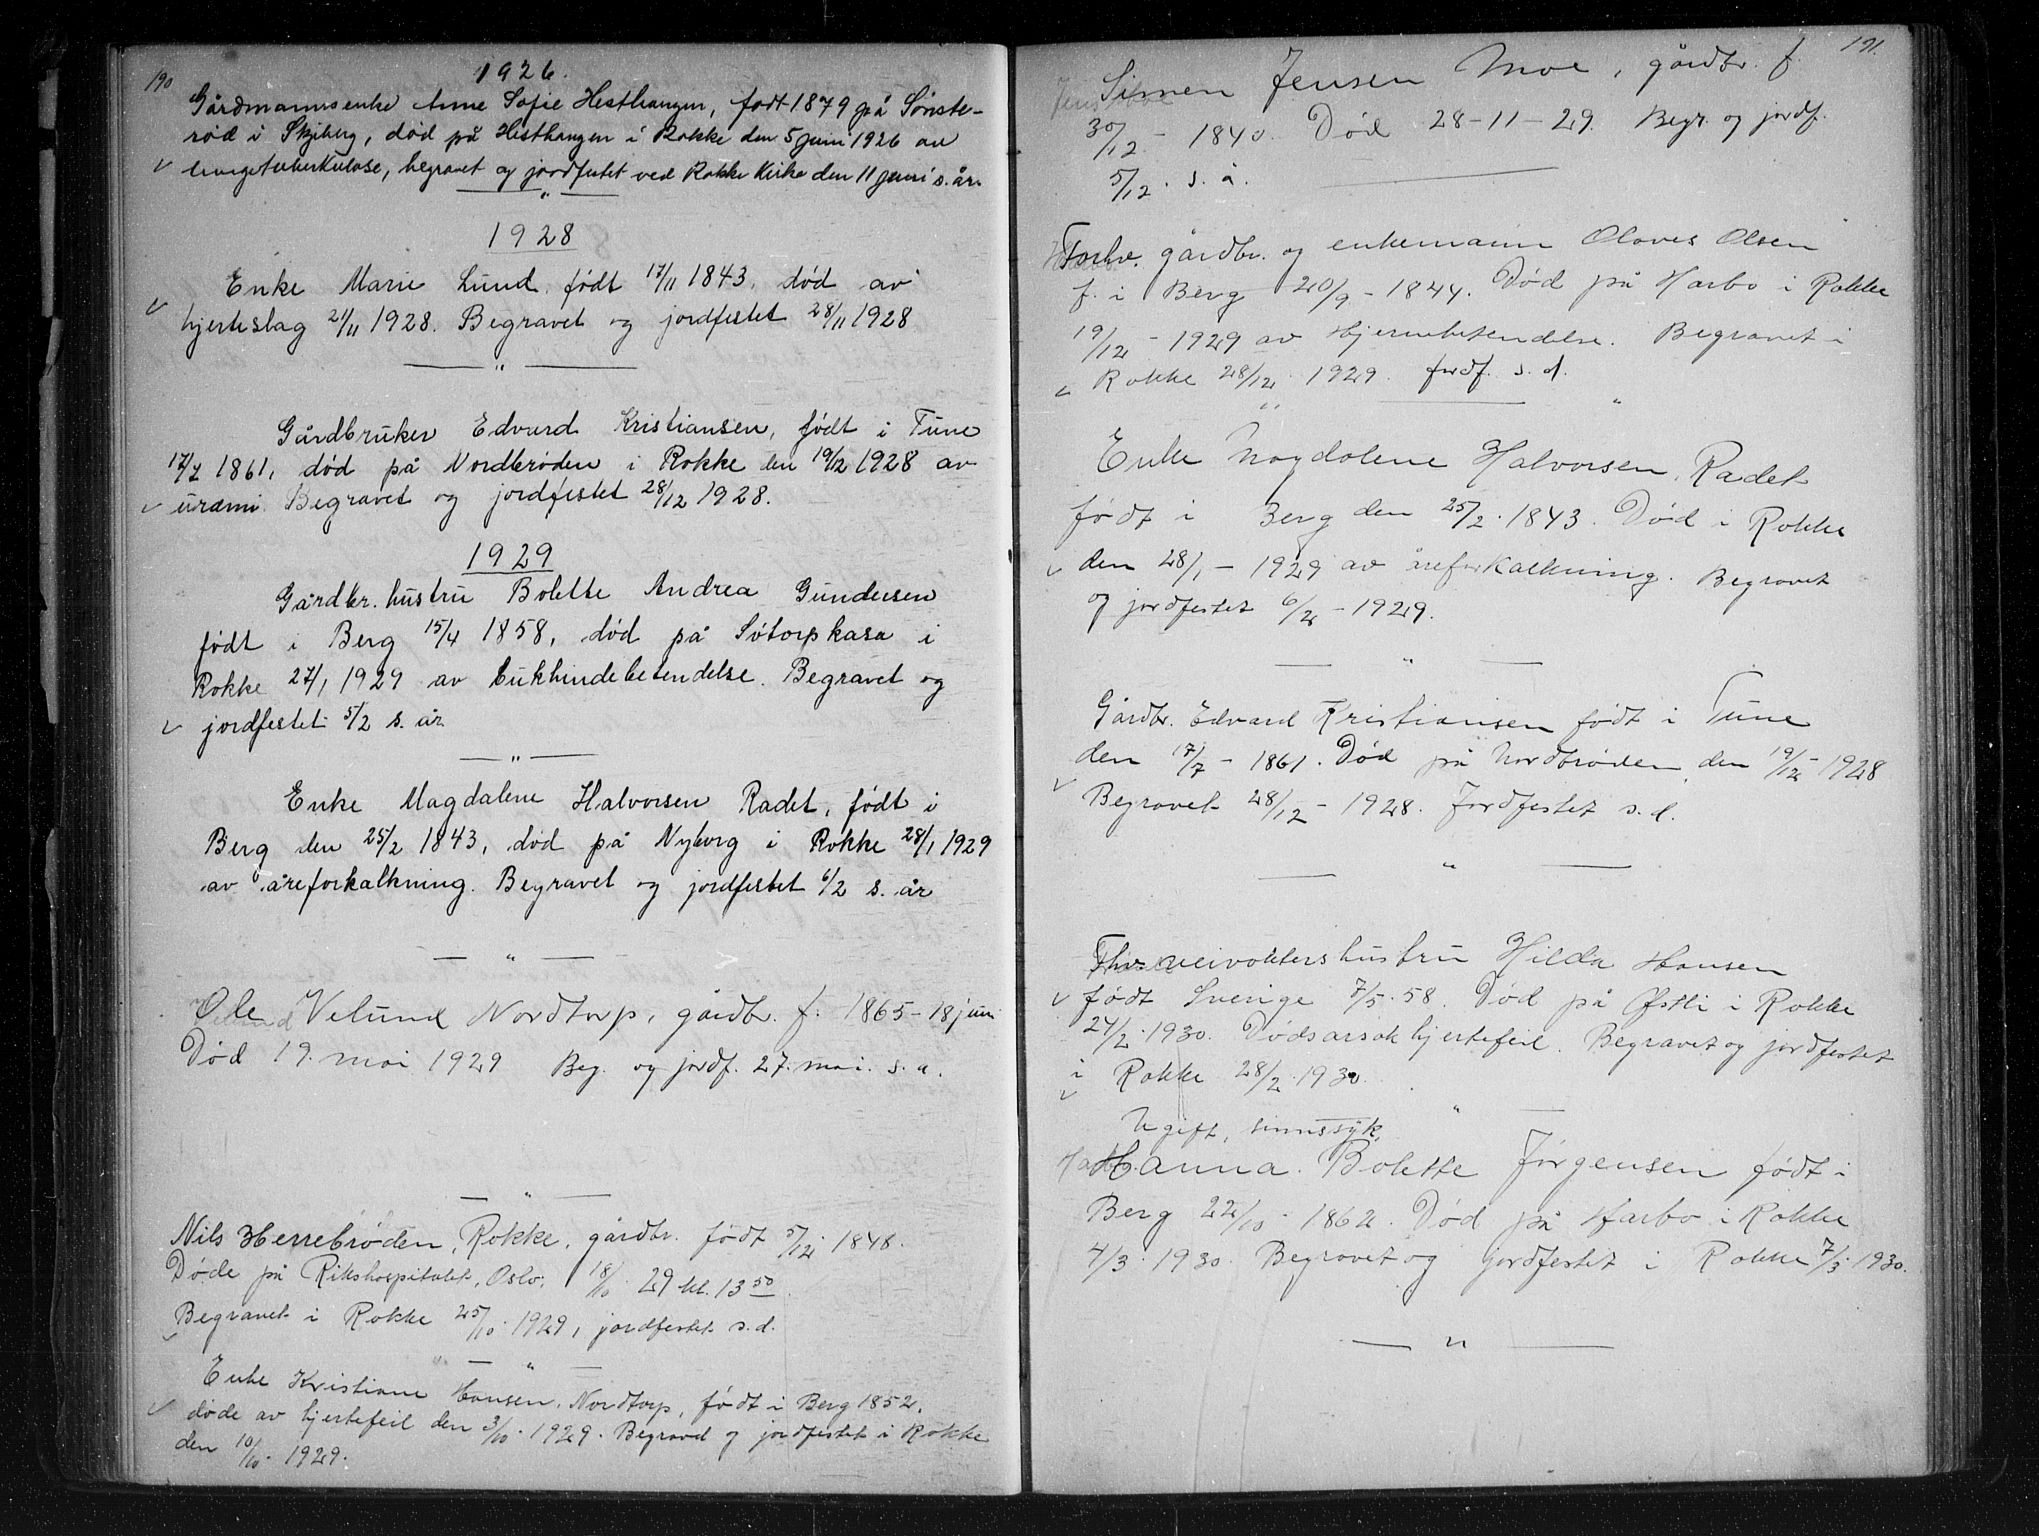 190
1926.
Gårdmannsenke Anne Sofie Hesthaugen, født 1879 på Sønste-
rød i Skjeberg, død på Hesthaugen i Rokke den 5 juni 1926 av
lungetuberkulose, begravet og jordfestet ved Rokke Kirke den 11 juni s. år.
1928
Enke Marie Lund, født 17/11 1843, død av
hjerteslag 21/11 1928. Begravet og jordfestet 28/11 1928
Gårdbruker Edvard Kristiansen, født i Tune
17/7 1861, død på Nordbrøden i Rokke den 19/12 1928 av
uræmi. Begravet og jordfestet 28/12 1928.
1929
Gårdbr. hustru Bolette Andrea Gundersen
født i Berg 15/4 1858, død på Søtorpkasa i
Rokke 27/1 1929 av bukhindebetendelse. Begravet og
jordfestet 5/2 s. år
Enke Magdalene Halvorsen Radet, født i
Berg den 25/2 1843, død på Nyborg i Rokke 28/1 1929
av åreforkalkning. Begravet og jordfestet 6/2 s. år
Ole Velund Nordtorp, gårdbr. f. 1865-18 juni
Død 19. mai 1929 Beg. og jordf. 27. mai. s. a.
Nils Herrebrøden, Rokke, gårdbr. født 5/12 1848.
Døde på Rikshospitalet, Oslo, 18/10 29 kl. 13 50
Begravet i Rokke 25/10 1929, jordfestet s.d.
Enke Kristiane Hansen, Nordtorp, født i Berg 1852,
døde av hjertefeil den 3/10 1929. Begraved og jordfestet i Rokke
den 10/10 1929.
191.
Simen Jensen Moe, gårdbr. f.
30/12 - 1840. Død 28-11-29. Begr. og jordf.
5/12. s. å.
Forhv. gårdbr. og enkemann Olaves Olsen
f. i Berg 20/9 - 1844. Død på Harbo i Rokke
19/12 - 1929 av Hjernebetendelse. Begravet i
Rokke 28/12. 1929. jordf. s. d.
Enke Magdalene Halvorsen, Radet
født i Berg den 25/2. 1843. Død i Rokke
den 28/1 - 1929 av åreforkalkning. Begravet
og jordfestet 6/2 - 1929.
Gårdbr. Edvard Kristiansen født i Tune
den 17/7 - 1861. Død på Nordbrøden, den 19/12 - 1928
Begravet 28/12 - 1928. Jordfestet s. d.
Fhv. veivokters hustru Hilda Hansen
født Sverige 7/5. 58. Død på Østli i Rokke
24/2. 1930. Dødsarsak hjertefeil. Begravet og jordfestet
i Rokke 28/2. 1930.
Ugift, sinnssyk,
Hanna Bolette Jørgensen født i
Berg 22/10 - 1862. Død på Harbo i Rokke
4/3. 1930. Begravet og jordfestet i Rokke 7/3. 1930.